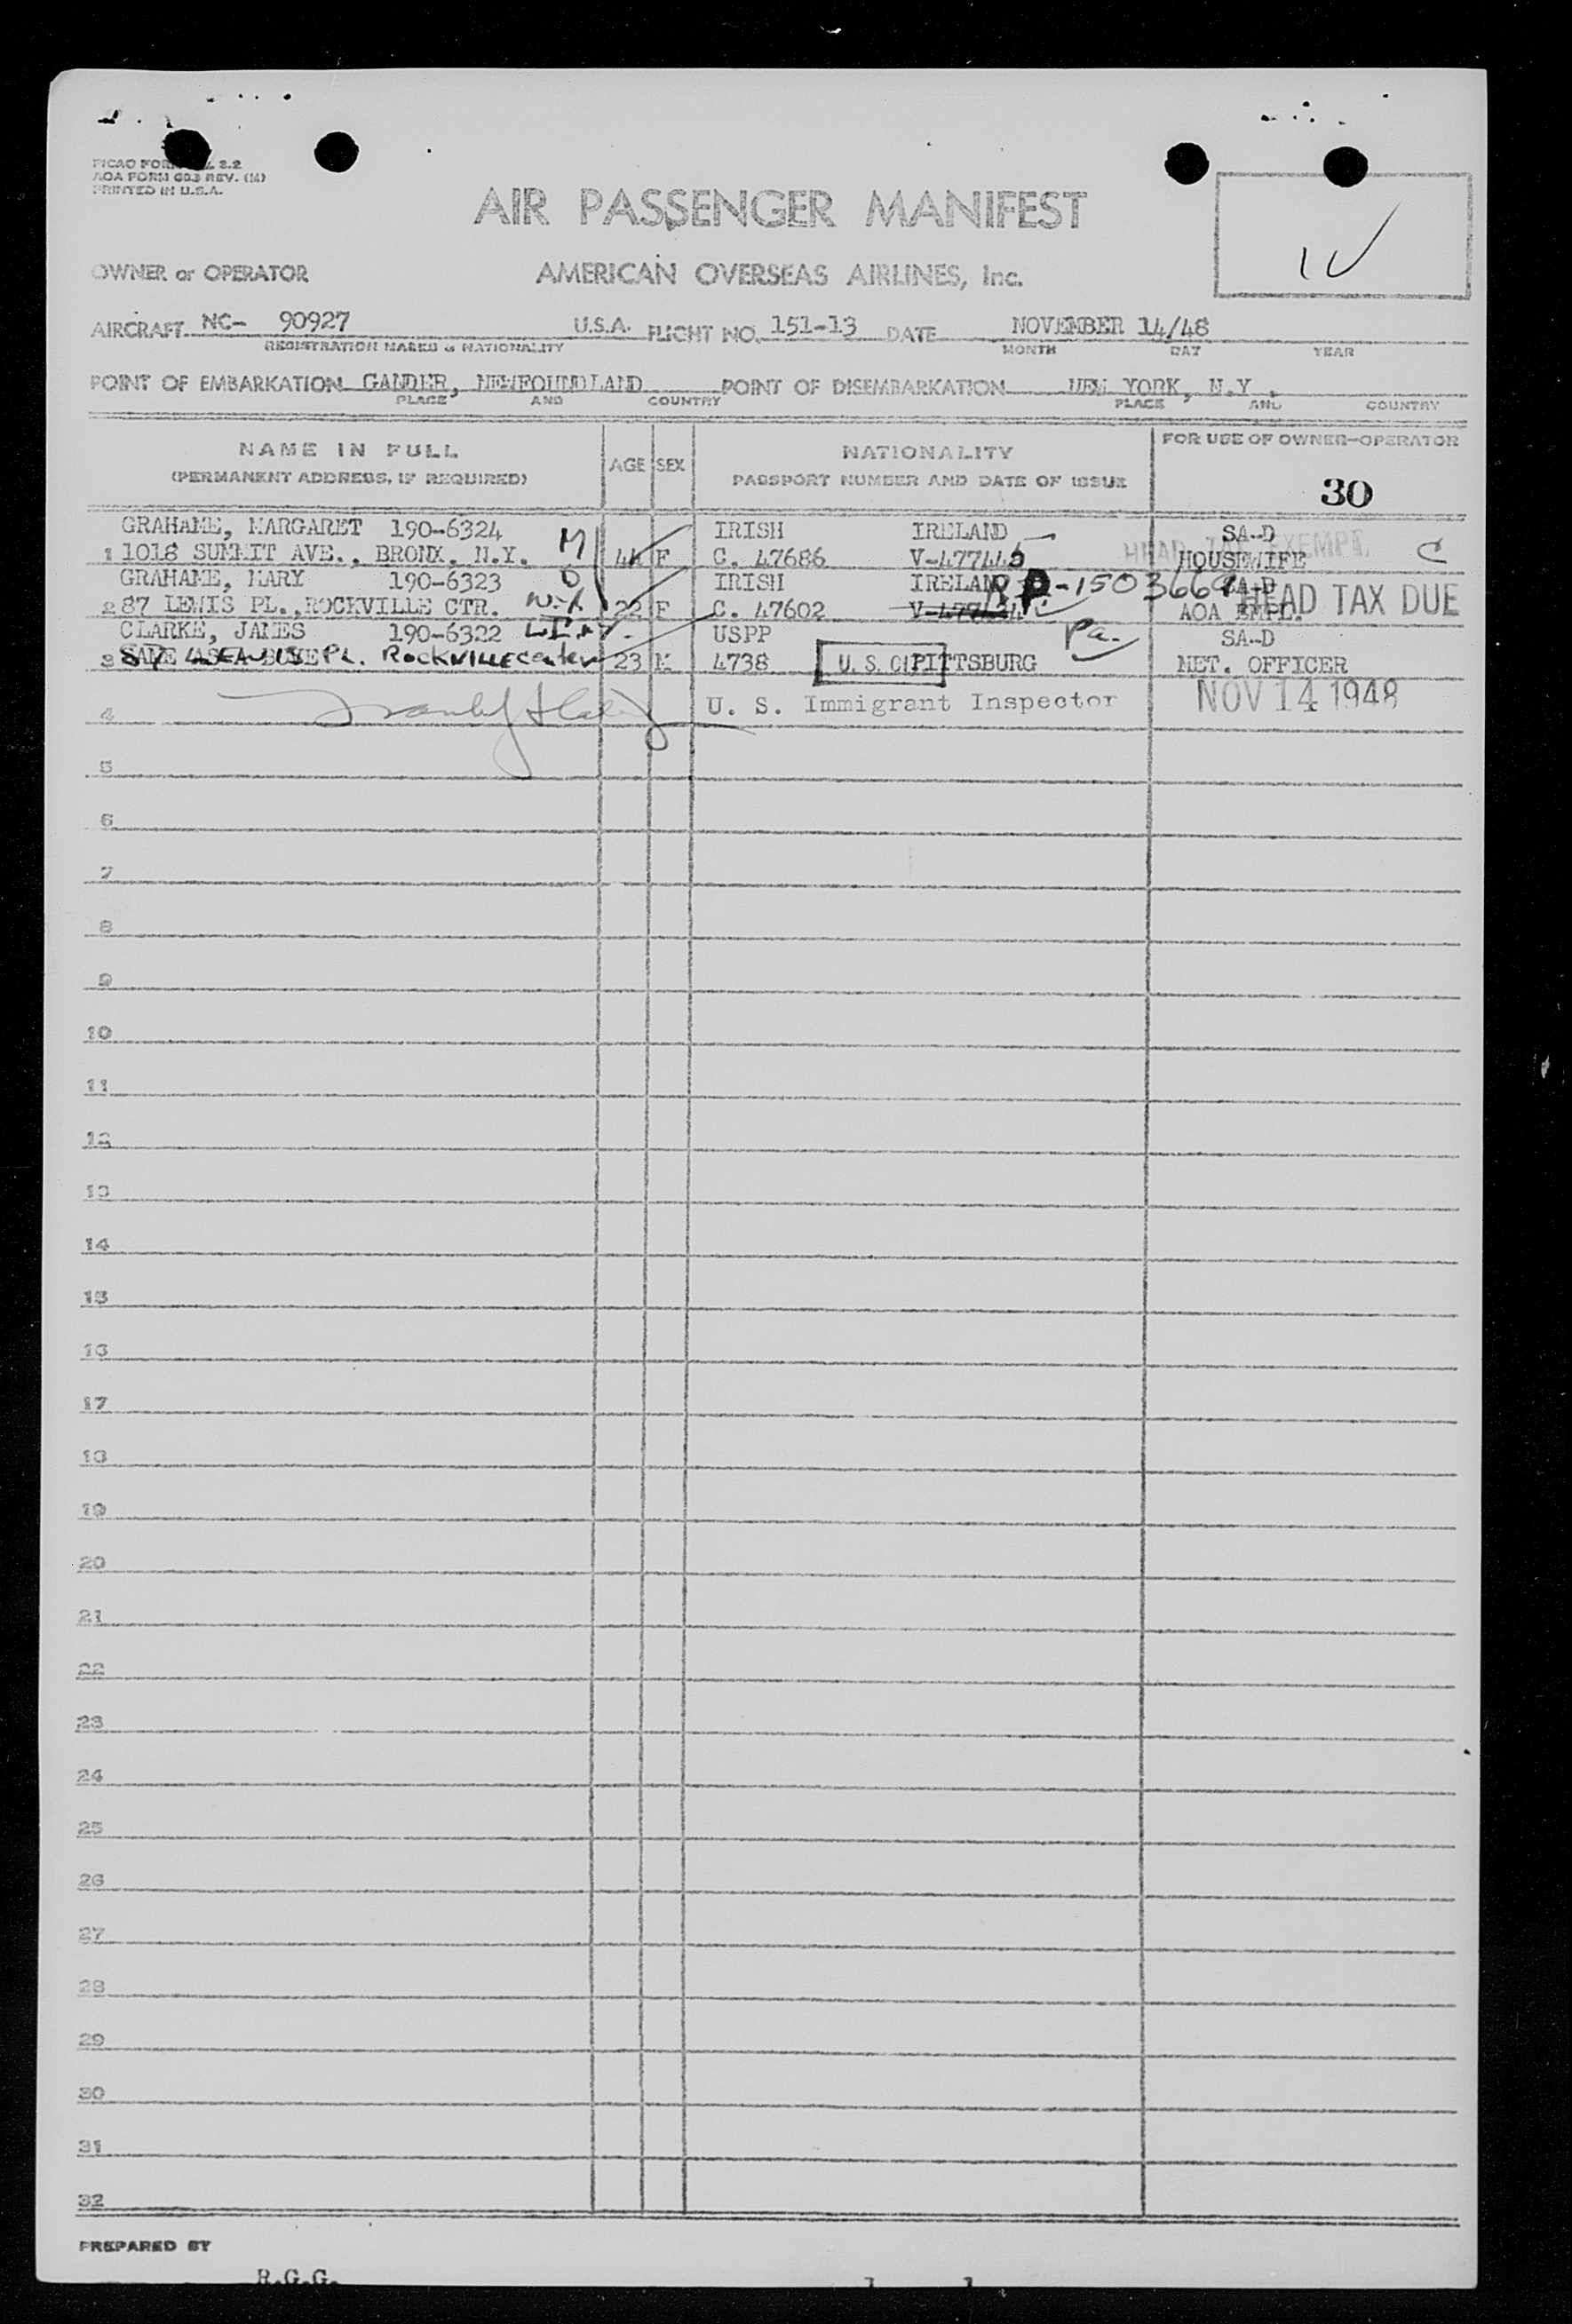 PICAO FOR 3.2
AOA FORM 603 REV. (M)
PRINTED IN U.S.A.
AIR PASSENGER MANIFEST
OWNER or OPERATOR AMERICAN OVERSEAS AIRLINES, Inc.
AIRCRAFT NC- 90927 U.S.A. FLIGHT NO. 151-13 DATE NOVEMBER 14/48
REGISTRATION MARKS & NATIONALITY MONTH DAY YEAR
POINT OF EMBARKATION GANDER, NEWFOUNDLAND POINT OF DISEMBARKATION NEW YORK, N.Y.,
PLACE AND COUNTRY PLACE AND COUNTRY
NAME IN FULL AGE SEX NATIONALITY FOR USE OF OWNER-OPERATOR
(PERMANENT ADDRESS, IF REQUIRED) PASSPORT NUMBER AND DATE OF ISSUE
30
GRAHAME, MARGARET 190-6324 IRISH IRELAND SA-D
HEAD TAX EXEMPT
1 1018 SUMMIT AVE., BRONX, N.Y. M 44 F C. 47686 V-477445 HOUSEWIFE C
GRAHAME, MARY 190-6323 D IRISH IRELAND P-1503669 SA-D
HEAD TAX DUE
2 87 LEWIS PL., ROCKVILLE CTR. N.Y. 22 F C. 47602 AOA EMPL.
CLARKE, JAMES 190-6322 USPP Pa. SA-D
3 87 PL. Rockville center 23 M 4738 U. S. C. PITTSBURG MET. OFFICER
4 U. S. Immigrant Inspector NOV 14 1948
5
6
7
8
9
10
11
12
13
14
15
16
17
18
19
20
21
22
23
24
25
26
27
28
29
30
31
32
PREPARED BY
R.G.G.